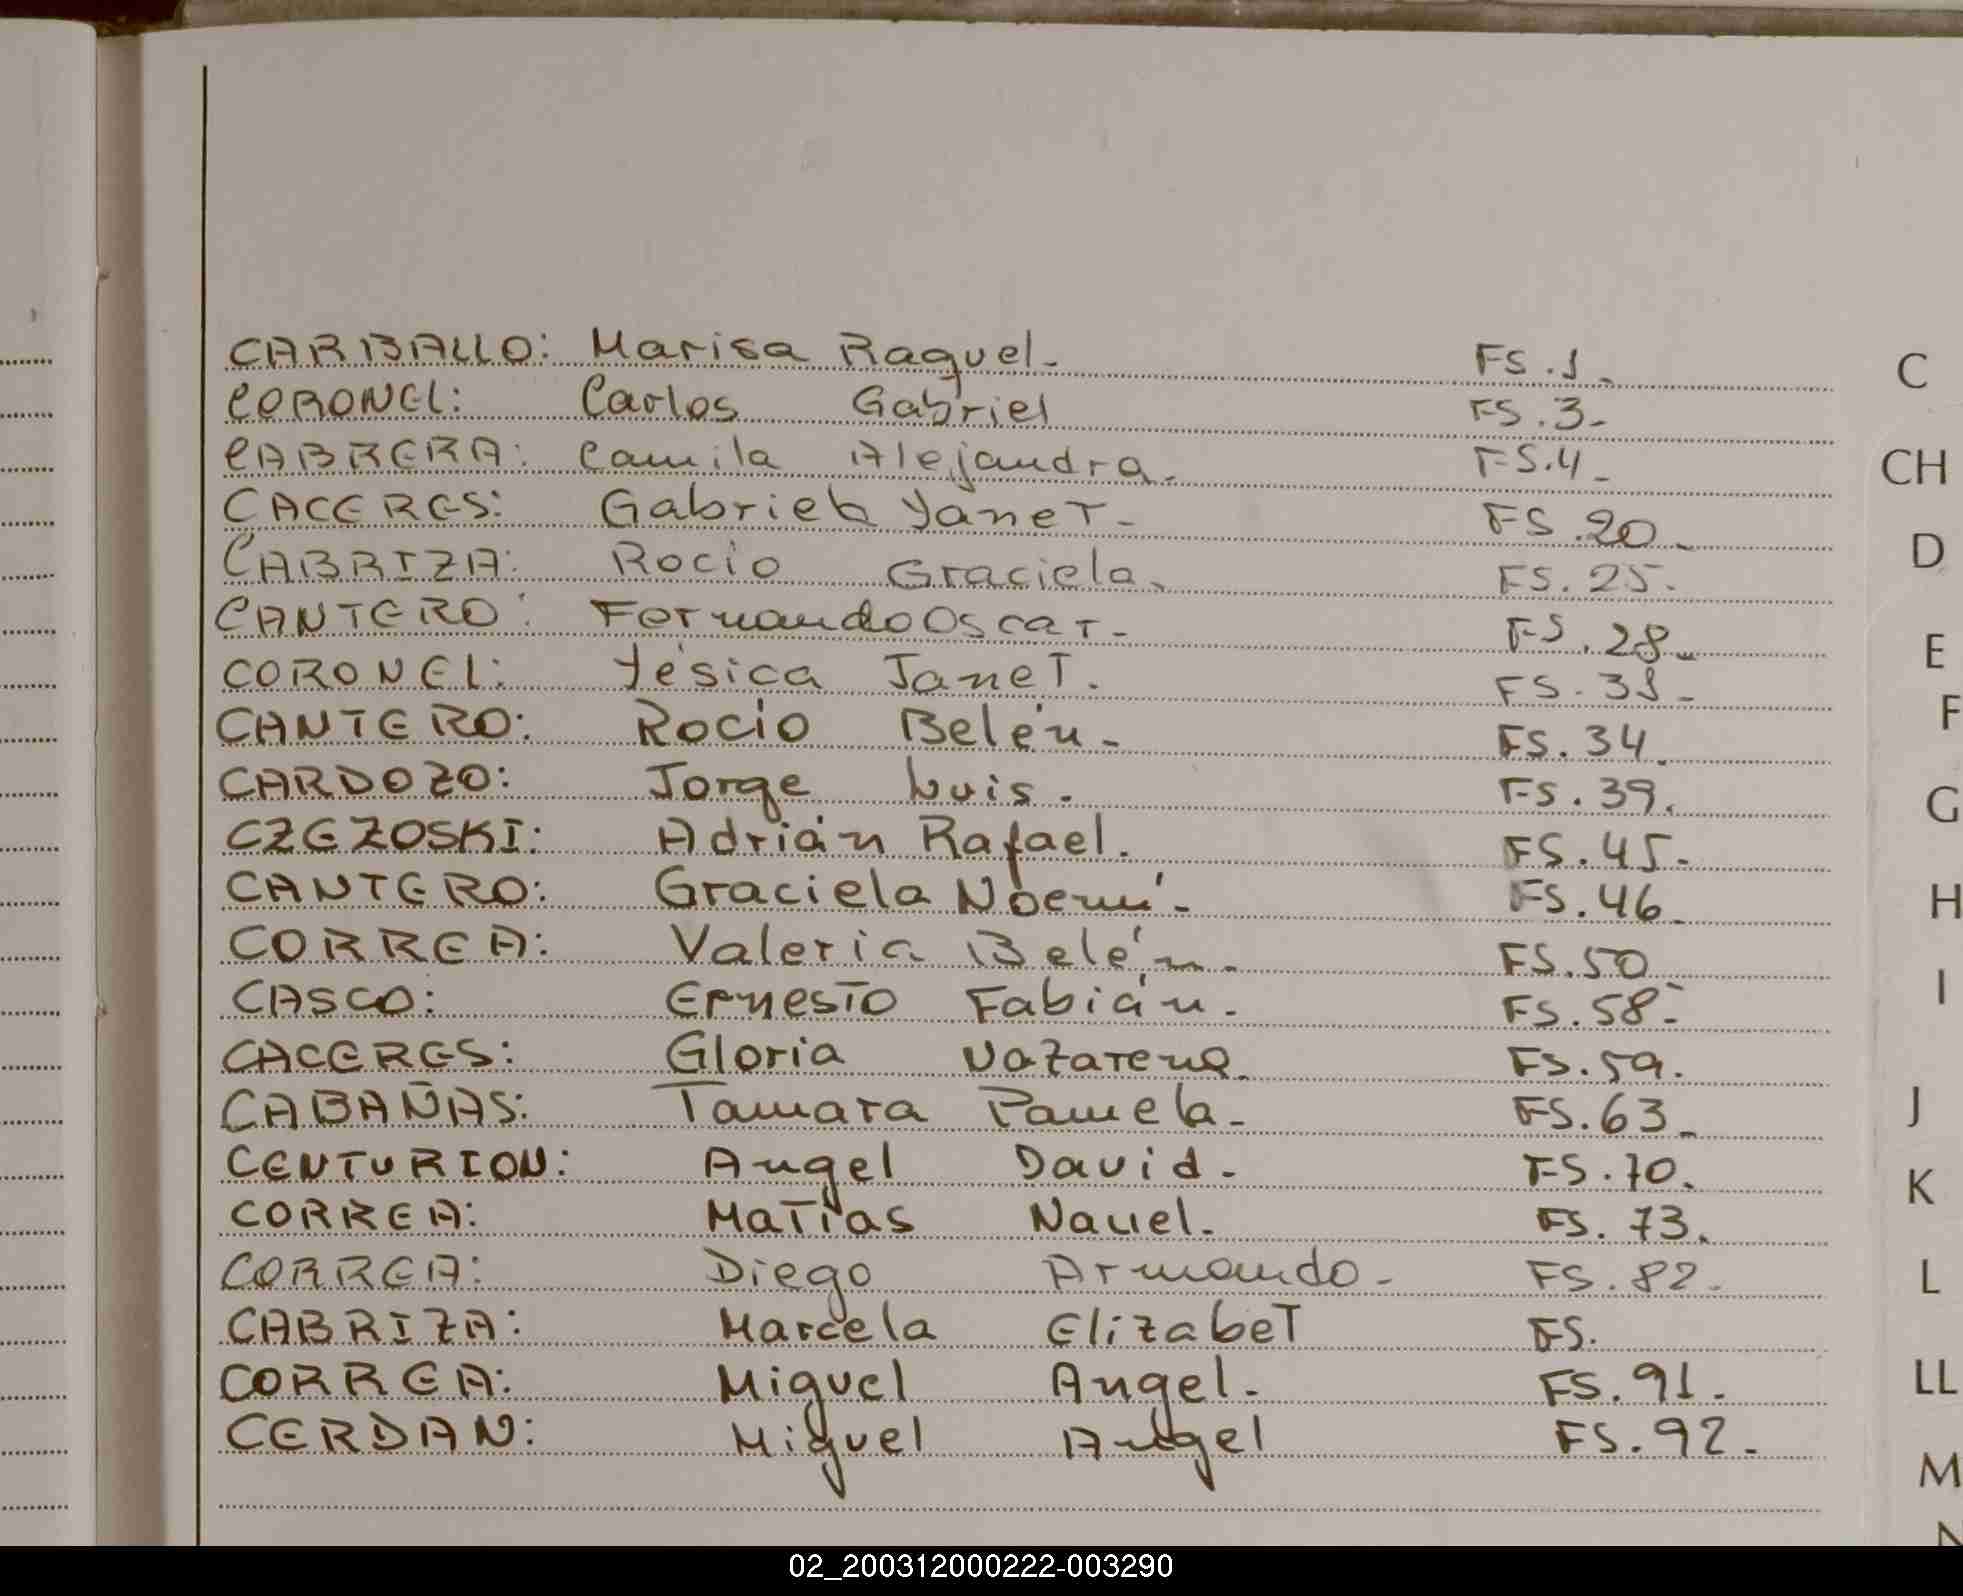 CARBALLO: Marisa Raquel- FS.1.
CORONEL: Carlos Gabriel FS.3-
CABRERA: Camila Alejandra. FS.4-
CACERES: Gabriela Yanet- FS.20-
CABRIZA: Rocio Graciela. FS.25.
CANTERO: Fernando Oscar- FS.28-
CORONEL: Yésica Janet. FS.31-
CANTERO: Rocío Belén- FS.34.
CARDOZO: Jorge Luis. FS.39.
CZEZOSKI: Adrián Rafael. FS.45-
CANTERO: Graciela Noemí- FS.46-
CORREA: Valeria Belén- FS.50
CASCO: Ernesto Fabián. FS.58-
CACERES: Gloria Nazarena. FS.59.
CABAÑAS: Tamara Pamela- FS.63-
CENTURION: Angel David- FS.70.
CORREA: Matías Nauel. FS.73.
CORREA: Diego Armando- FS.82.
CABRIZA: Marcela Elizabet FS.
CORREA: Miguel Angel. FS.91.
CERDAN: Miguel Angel FS.92.
C
CH
D
E
F
G
H
I
J
K
L
LL
M
N
02_200312000222-003290